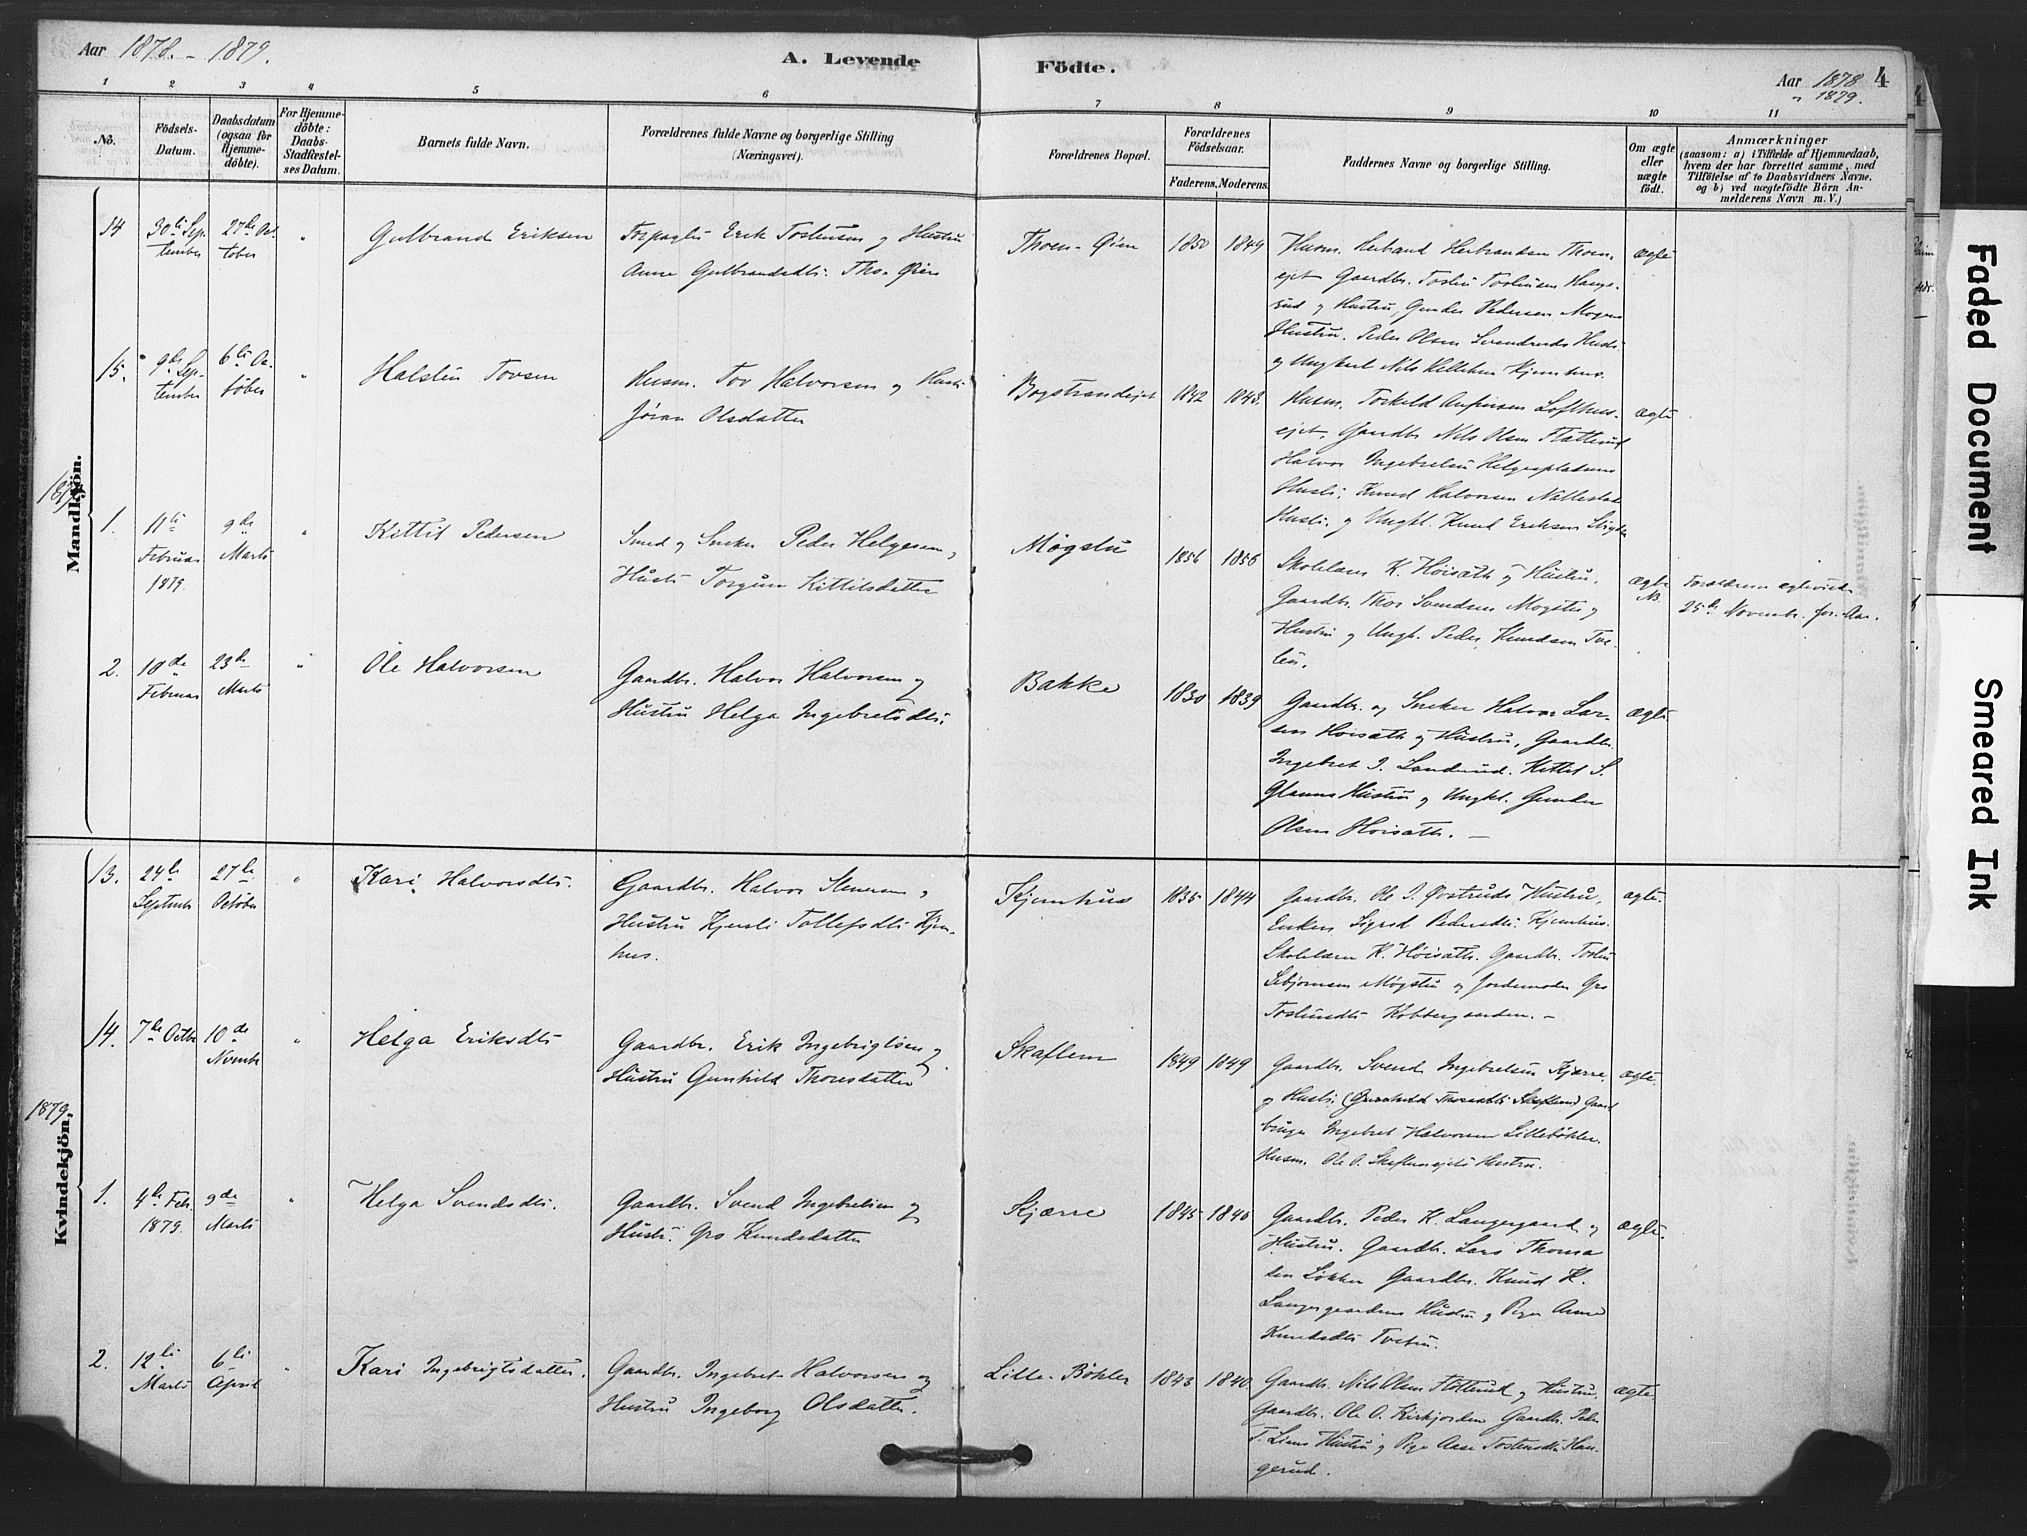 Aar 1878 - 1879.
A. Levende
Födte.
Aar 1878
" 1879.
4
1 2 3 4 5 6 7 8 9 10 11
No.
Födsels-
Datum.
Daabsdatum
(ogsaa for
Hjemme-
döbte).
For Hjemme-
döbte:
Daabs-
Stadfæstel-
ses Datum.
Barnets fulde Navn.
Forældrenes fulde Navne og borgerlige Stilling
(Næringsvei).
Forældrenes Bopæl.
Forældrenes
Födselsaar.
Faderens. Moderens.
Faddernes Navne og borgerlige Stilling.
Om ægte
eller
uægte
födt.
Anmærkninger
(saasom: a) i Tilfælde af Hjemmedaab,
hvem der har forrettet samme, med
Tilföielse af to Daabsvidners Navne,
og b) ved uægtefödte Börn An-
melderens Navn m. V.)
Mandkjön.
14
30te Sep-
tember
27de Oc-
tober
"
Gulbrand Eriksen
Erik Tostensen og Hustru
Anne Gulbrandsdtr.
Thoen-Øien
1850
1849
Husm. Herbrand Herbrandsen Thoen-
ejet Gaardbr. Tosten Tostensen Hange-
rud og Hustru, Gunder Pedersen Mogens
Hustru. Peder Olsen
og Ungkarl Nils Kjemhus.
ægte
15.
9de Sep-
tember
6te Oc-
tober
"
Halsten Tovsen
Husm. Tov Halvorsen og Hustr.
Jøran Olsdatter
Bogstrandejet
1842
1843.
Husm. Torkeld Lofthus-
ejet, Gaardbr. Nils Olsen Flatterud
Halvor Ingebretsen Helgespladsens
Hustr. Knud Halvorsen
Hustr. og Ungk. Knud Eriksen
ægte
1.
11te
Februar
1879.
9de
Marts
"
Kittil Pedersen
Smed og Sneker Peder Helgesen,
Hustr. Torgun Kittilsdatter
Møgstu
1856
1856
Skolelærer K. Høisæth og Hustru.
Gaardbr. Thor Svendsen Mogstu og
Hustru og Ungk. Peder Knudsen
ægte
NB.
Forældrene ægteviede
25de Novembr. for. Aar.
2.
18de
Februar
23de
Marts
"
Ole Halvorsen
Gaardbr. Halvor Halvorsen og
Hustru Helga Ingebretsdtr.
Bakke
1830
1839
Gaardbr. og Sneker Halvor Lar-
sen Hoisæth og Hustru, Gaardbr.
Ingebret I. Landsrud. Kittil S.
Hustru og Ungk. Gunder
Olsen Hoisæth. —
ægte
1879.
Kvindekjön.
13.
24de
Septembr
27de
October
"
Kari Halvorsdtr.
Gaardbr. Halvor Stenersen,
Hustru Kjersti Tollefsdtr. Kjem-
hus.
Kjemhus
1835
1844
Gaardbr. Ole I. Østruds Hustru,
Enken Sigrid Pedersdtr. Kjemhus.
Skolelærer K. Høisæth. Gaardbr. Tosten
Sebjornsen Møgstu og Jordemoder Gro
Tostensdtr. Kobbergaarden. —
ægte.
14.
7de Octbr
10de
Novembr
"
Helga Eriksdtr
Gaardbr. Erik Ingebrigtsen og
Hustru Gunhild Thoresdatter
Skaflem
1849
1849
Gaardbr. Svend Ingebretsen Kjærre
og Hustr. (Gunhild Thoresdtr. Skaflem) Gaard
bruger Ingebret Halvorsen Lillebøhler.
Husm. Ole O. Skaflemejets Hustru.
ægte.
1.
4de Feb.
1879.
9de
Marts
"
Helga Svendsdtr.
Gaardbr. Svend Ingebretsen og
Hustr. Gro Knudsdatter
Kjærre
1845
1846
Gaardbr. Peder K. Langergaard og
Hustru. Gaardbr. Lars Thoma
sen Løkken Gaardbr. Knud K.
Langergaardens Hustru og Pige Anne
Knudsdtr.
ægte.
2.
12te
Marts
6te
April
"
Kari Ingebrigtsdatter.
Gaardbr. Ingebret Halvorsen og
Hustru Ingeborg Olsdatter.
Lille-Bøhler
1843
1840
Gaardbr. Nils Olsen Flatterud og Hustru,
Gaardbr. Ole O. Kirkjorden Gaardbr. Peder
T. Liens Hustru og Pige Aase Tostensdtr. Han-
gerud.
ægte
Faded Document
Smeared Ink